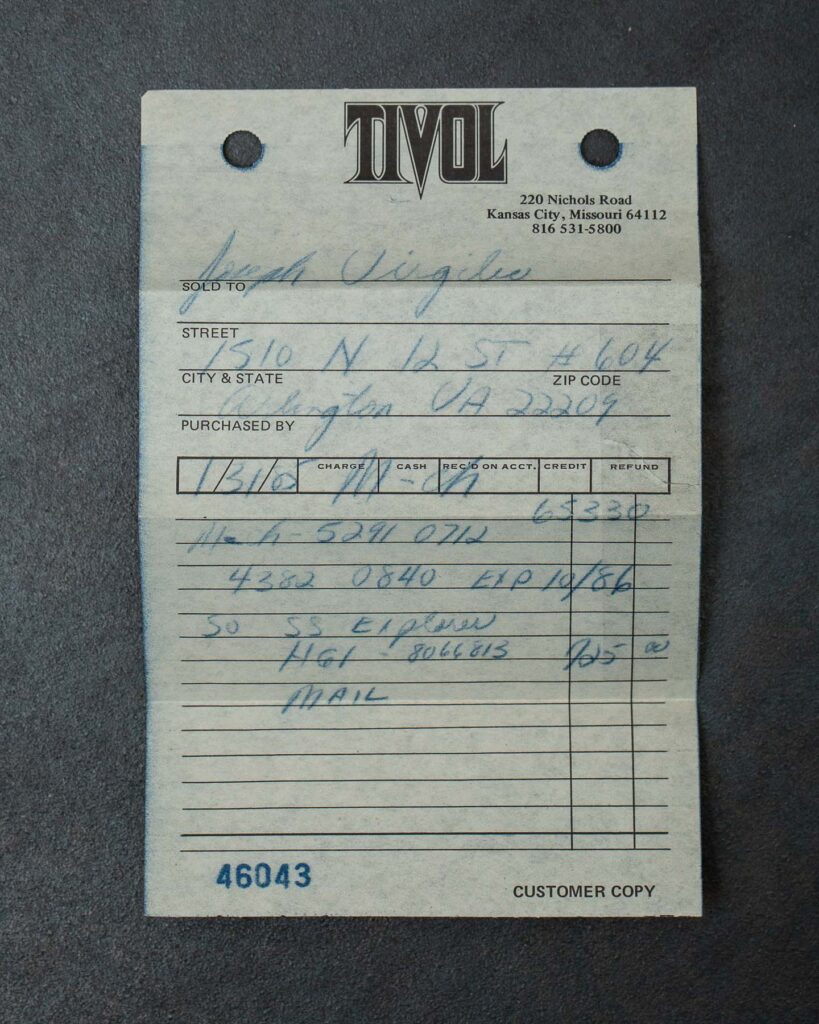 TIVOL
220 Nichols Road
Kansas City, Missouri 64112
816 531-5800
Joseph Virgilio
SOLD TO
STREET
1510 N 12 ST # 604
CITY & STATE ZIP CODE
Arlington VA 22209
PURCHASED BY
CHARGE CASH REC'D ON ACCT. CREDIT REFUND
1/31/85 M-ch
65330
M-ch - 5291 0712
4382 0840 EXP 10/86
SO SS Explorer
HGI - 8066813 725 00
MAIL
46043
CUSTOMER COPY